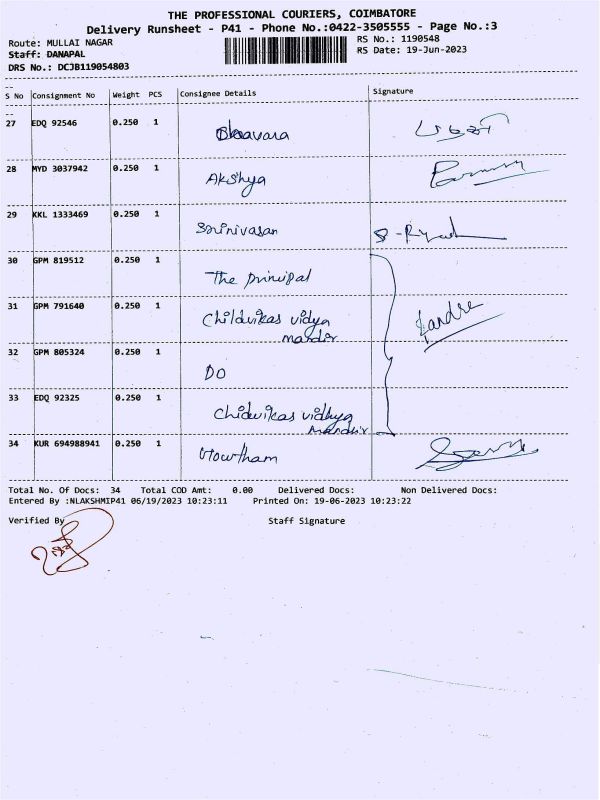 THE PROFESSIONAL COURIERS, COIMBATORE
Delivery Runsheet - P41 - Phone No.:0422-3505555 - Page No.:3
Route: MULLAI NAGAR RS No.: 1190548
Staff: DANAPAL RS Date: 19-Jun-2023
DRS No.: DCJB119054803
S No Consignment No Weight PCS Consignee Details Signature
27 EDQ 92546 0.250 1
28 MYD 3037942 0.250 1 Akshya
29 KKL 1333469 0.250 1 Srinivasan
30 GPM 819512 0.250 1 The principal
31 GPM 791640 0.250 1 Childvikas vidya
mandir
32 GPM 805324 0.250 1 DO
33 EDQ 92325 0.250 1 Chidvikas vidhya
mandir
34 KUR 694988941 0.250 1 Gowtham
Total No. Of Docs: 34 Total COD Amt: 0.00 Delivered Docs: Non Delivered Docs:
Entered By :NLAKSHMIP41 06/19/2023 10:23:11 Printed On: 19-06-2023 10:23:22
Verified By Staff Signature